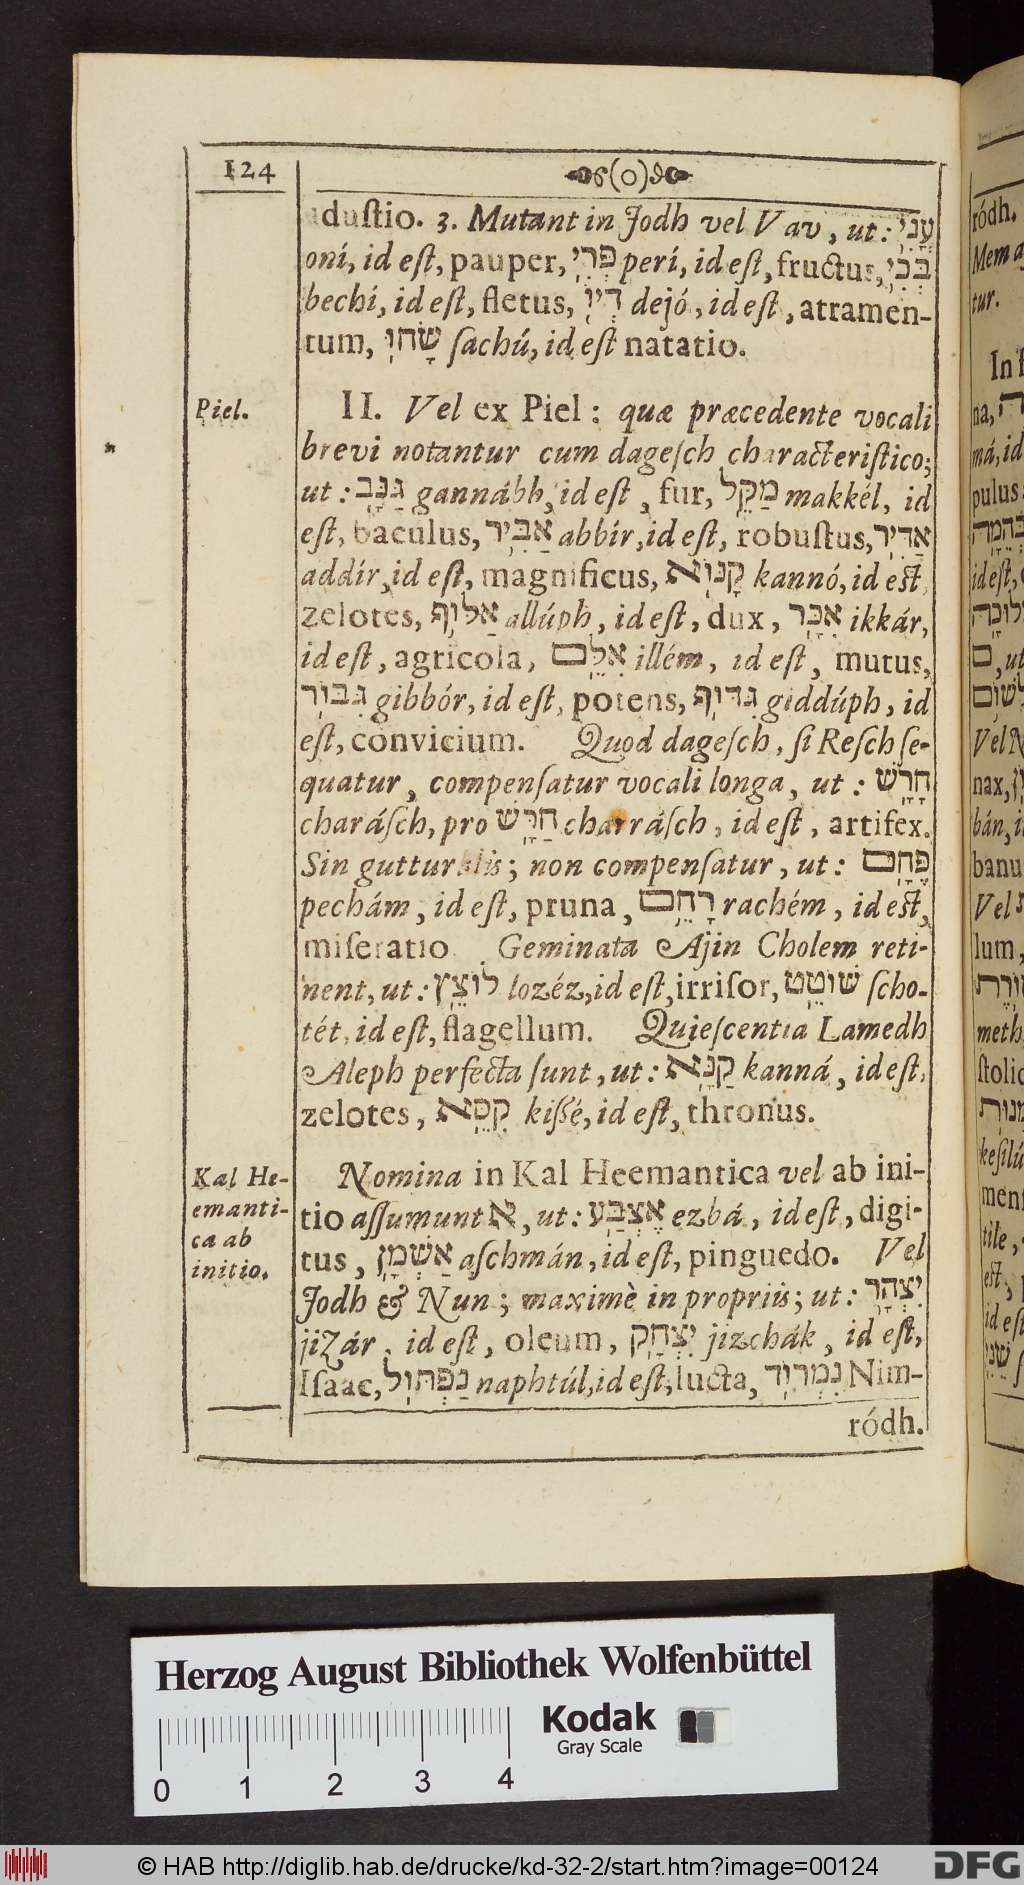 124
aduſtio. 3. Mutant in Jodh vel Vav, ut: עֳנִי
oní, id eſt, pauper, פְּרִי perí, id eſt, fructus, בְּכִי
bechí, id eſt, fletus, דְּיוֹ dejó, id eſt, atramen-
tum, שָׂחוּ ſachú, id eſt natatio.
Piel.
II. Vel ex Piel: quæ præcedente vocali
brevi notantur cum dageſch characteriſtico;
ut: גַּנָּב gannábh, id eſt, fur, מַקֵּל makkél, id
eſt, baculus, אַבִּיר abbír, id eſt, robuſtus, אַדִּיר
addír, id eſt, magnificus, קַנּוֹא kannó, id eſt,
zelotes, אַלּוּף allúph, id eſt, dux, אִכָּר ikkár,
id eſt, agricola, אִלֵּם illém, id eſt, mutus,
גִּבּוֹר gibbór, id eſt, potens, גִּדּוּף giddúph, id
eſt, convicium. Quod dageſch, ſi Reſch ſe-
quatur, compenſatur vocali longa, ut: חָרָשׁ
charáſch, pro חַרָּשׁ charráſch, id eſt, artifex.
Sin gutturalis; non compenſatur, ut: פֶּחָם
pechám, id eſt, pruna, רָחֵם rachém, id eſt,
miſeratio. Geminata Ajin Cholem reti-
nent, ut: לוֹצֵץ lozéz, id eſt, irriſor, שׁוֹטֵט ſcho-
tét, id eſt, flagellum. Quieſcentia Lamedh
Aleph perfecta ſunt, ut: קַנָּא kanná, id eſt,
zelotes, כִּסֵּא kiſſé, id eſt, thronus.
Kal He-
emanti-
ca ab
initio.
Nomina in Kal Heemantica vel ab ini-
tio aſſumunt א, ut: אֶצְבַּע ezbá, id eſt, digi-
tus, אַשְׁמָן aſchmán, id eſt, pinguedo. Vel
Jodh & Nun; maximè in propriis; ut: יִצְהָר
jizár, id eſt, oleum, יִצְחָק jizchák, id eſt,
Iſaac, נַפְתּוּל naphtúl, id eſt, lucta, נִמְרוֹד Nim-
ródh.
Herzog August Bibliothek Wolfenbüttel
Kodak
Gray Scale
0 1 2 3 4
© HAB http://diglib.hab.de/drucke/kd-32-2/start.htm?image=00124
DFG